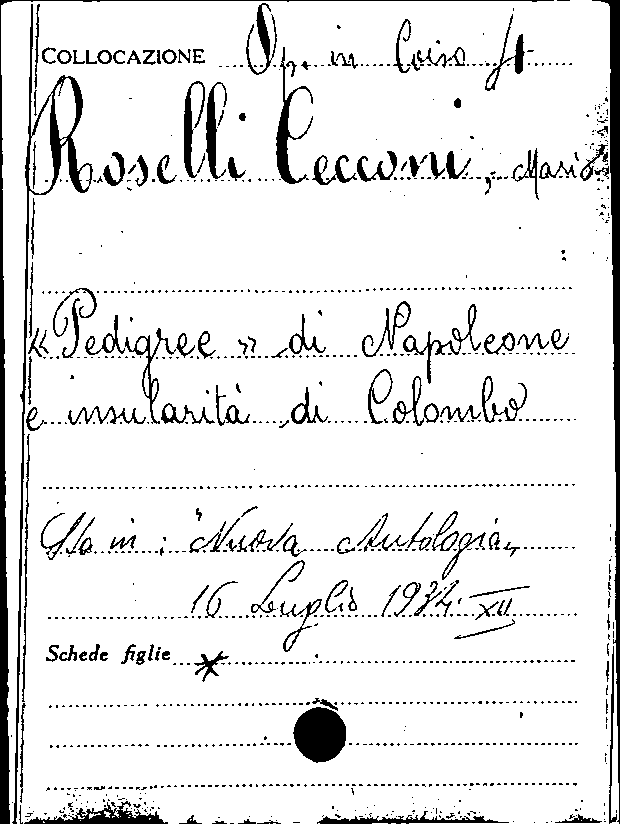 COLLOCAZIONE Op. in Corso
Roselli Cecconi, Mario
« Pedigree » di Napoleone
e insularità di Colombo
Sta in : "Nuova Antologia„
16 Luglio 1934. XII
Schede figlie